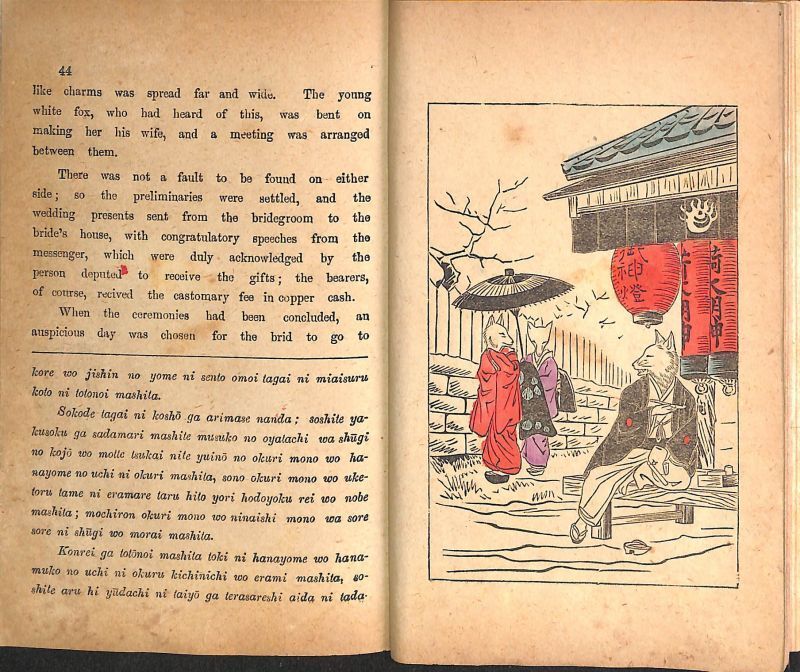 44
like charms was spread far and wide. The young
white fox, who had heard of this, was bent on
making her his wife, and a meeting was arranged
between them.
There was not a fault to be found on either
side; so the preliminaries were settled, and the
wedding presents sent from the bridegroom to the
bride's house, with congratulatory speeches from the
messenger, which were duly acknowledged by the
person deputed to receive the gifts; the bearers,
of course, recived the castomary fee in copper cash.
When the ceremonies had been concluded, an
auspicious day was chosen for the brid to go to
kore wo jishin no yome ni sento omoi tagai ni miaisuru
koto ni totonoi mashita.
Sokode tagai ni koshō ga arimase nanda; soshite ya-
kusoku ga sadamari mashite musuko no oyatachi wa shūgi
no kojō wo motte tsukai nite yuinō no okuri mono wo ha-
nayome no uchi ni okuri mashita, sono okuri mono wo uke-
toru tame ni eramare taru hito yori hodoyoku rei wo nobe
mashita; mochiron okuri mono wo ninaishi mono wa sore
sore ni shūgi wo morai mashita.
Konrei ga totōnoi mashita toki ni hanayome wo hana-
muko no uchi ni okuru kichinichi wo erami mashita, so-
shite aru hi yūdachi ni taiyō ga terasareshi aida ni tada-
御神燈